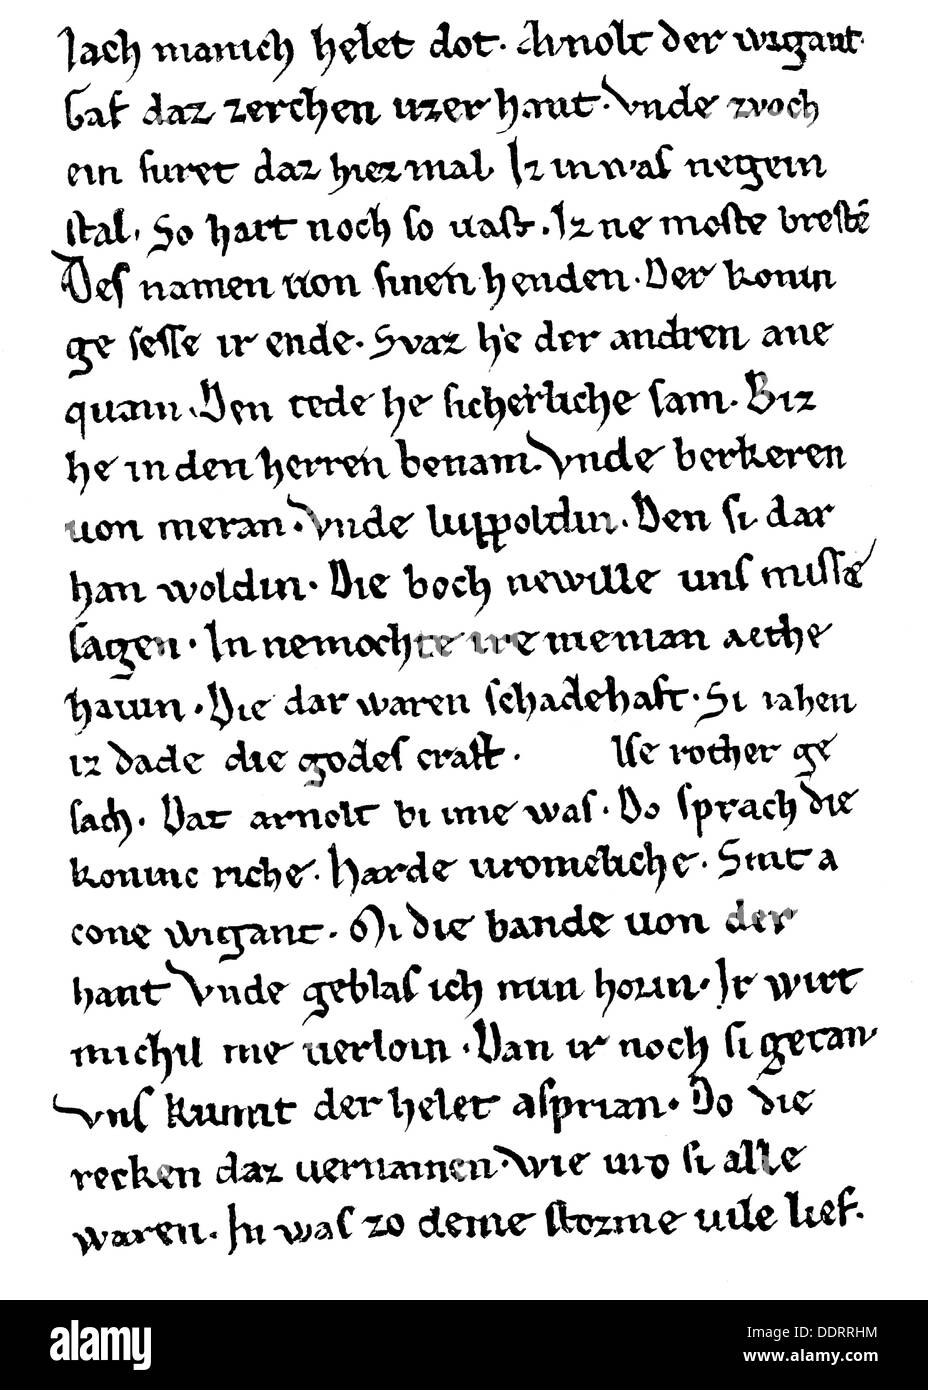 lach manich helet dot. Arnolt der wigant.
Gaf daz zerchen uzer hant. Vnde zvoch
ein suret daz hiez mal. Iz inwas negein
stal. So hart noch so uast. Iz ne moste brestē
Des namen uon sinen henden. Der konin
ge sesse ir ende. Svaz he der andren ane
quam. Den tede he sicherliche sam. Biz
he in den herren benam. Vnde berkeren
uon meran. Vnde luppoldin. Den si dar
han woldin. Die boch newille uns missæ
sagen. In nemochte nie nieman aethe
hauin. Die dar waren schadehaft. Si iahen
iz dade die godes craft. Ise rother ge
sach. Dat arnolt bi ime was. Do sprach die
koninc riche. Harde uromeliche. Sint a
cone wigant. Ni die bande uon der
hant Vnde geblas ich min horin. Ir wirt
michil me uerloin. Van ir noch si getan
Vns kumit der helet asprian. Do die
recken daz uernamen. Wie uro si alle
waren. In was zo deme storme uile lief.
alamy
DDRRHM
www.alamy.com